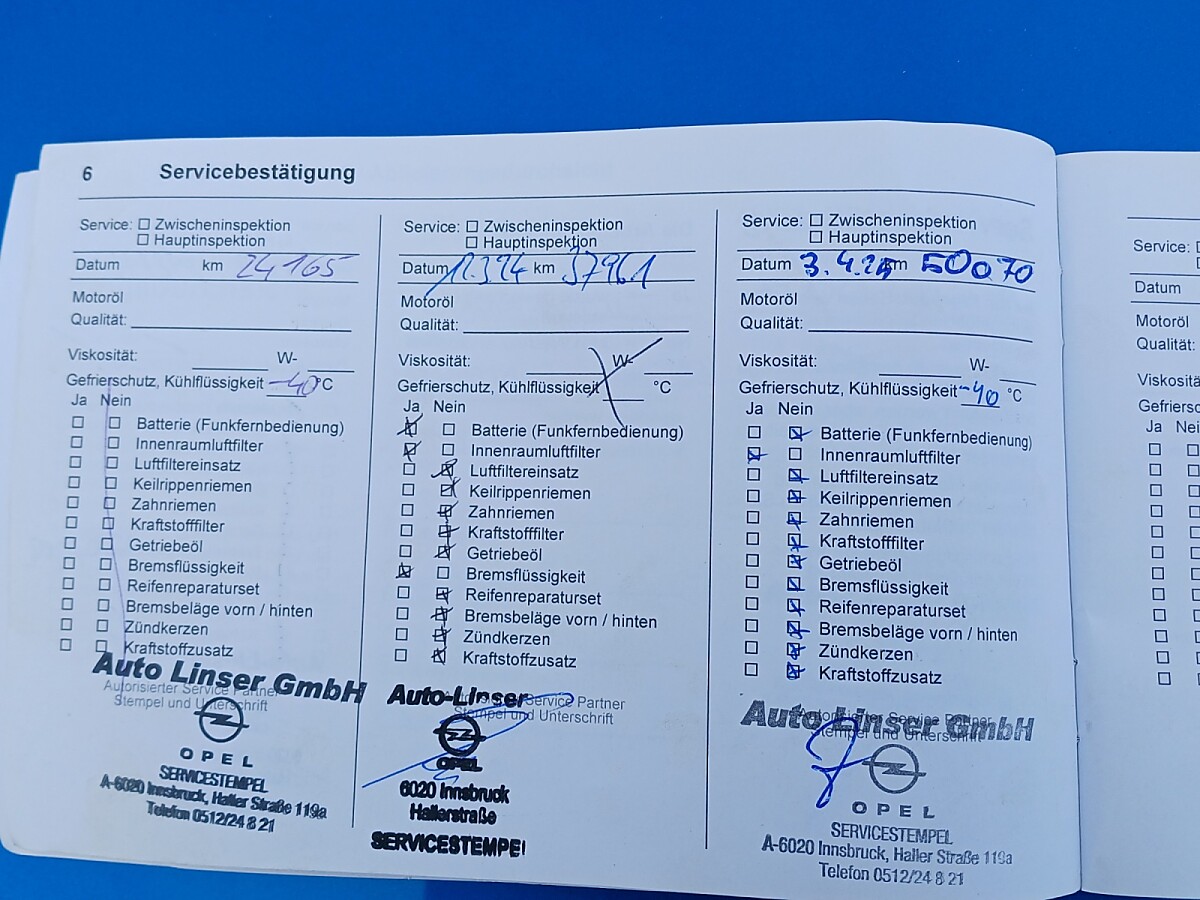 6 Servicebestätigung
Service: ☐ Zwischeninspektion
☐ Hauptinspektion
Datum km 24165
Motoröl
Qualität:
Viskosität: W-
Gefrierschutz, Kühlflüssigkeit -40 °C
Ja Nein
Batterie (Funkfernbedienung)
Innenraumluftfilter
Luftfiltereinsatz
Keilrippenriemen
Zahnriemen
Kraftstofffilter
Getriebeöl
Bremsflüssigkeit
Reifenreparaturset
Bremsbeläge vorn / hinten
Zündkerzen
Kraftstoffzusatz
Auto Linser GmbH
Autorisierter Service Partner
Stempel und Unterschrift
OPEL
SERVICESTEMPEL
A-6020 Innsbruck, Haller Straße 119a
Telefon 0512/24 8 21
Service: ☐ Zwischeninspektion
☐ Hauptinspektion
Datum km 37961
Motoröl
Qualität:
Viskosität: W-
Gefrierschutz, Kühlflüssigkeit °C
Ja Nein
Batterie (Funkfernbedienung)
Innenraumluftfilter
Luftfiltereinsatz
Keilrippenriemen
Zahnriemen
Kraftstofffilter
Getriebeöl
Bremsflüssigkeit
Reifenreparaturset
Bremsbeläge vorn / hinten
Zündkerzen
Kraftstoffzusatz
Auto-Linser
Service Partner
Stempel und Unterschrift
OPEL
6020 Innsbruck
Hallerstraße
SERVICESTEMPEL
Service: ☐ Zwischeninspektion
☐ Hauptinspektion
Datum 3.4.25 km 50070
Motoröl
Qualität:
Viskosität: W-
Gefrierschutz, Kühlflüssigkeit -40 °C
Ja Nein
Batterie (Funkfernbedienung)
Innenraumluftfilter
Luftfiltereinsatz
Keilrippenriemen
Zahnriemen
Kraftstofffilter
Getriebeöl
Bremsflüssigkeit
Reifenreparaturset
Bremsbeläge vorn / hinten
Zündkerzen
Kraftstoffzusatz
Auto Linser GmbH
Autorisierter Service Partner
Stempel und Unterschrift
OPEL
SERVICESTEMPEL
A-6020 Innsbruck, Haller Straße 119a
Telefon 0512/24 8 21
Service:
Datum
Motoröl
Qualität:
Viskositä
Gefriersc
Ja Nei